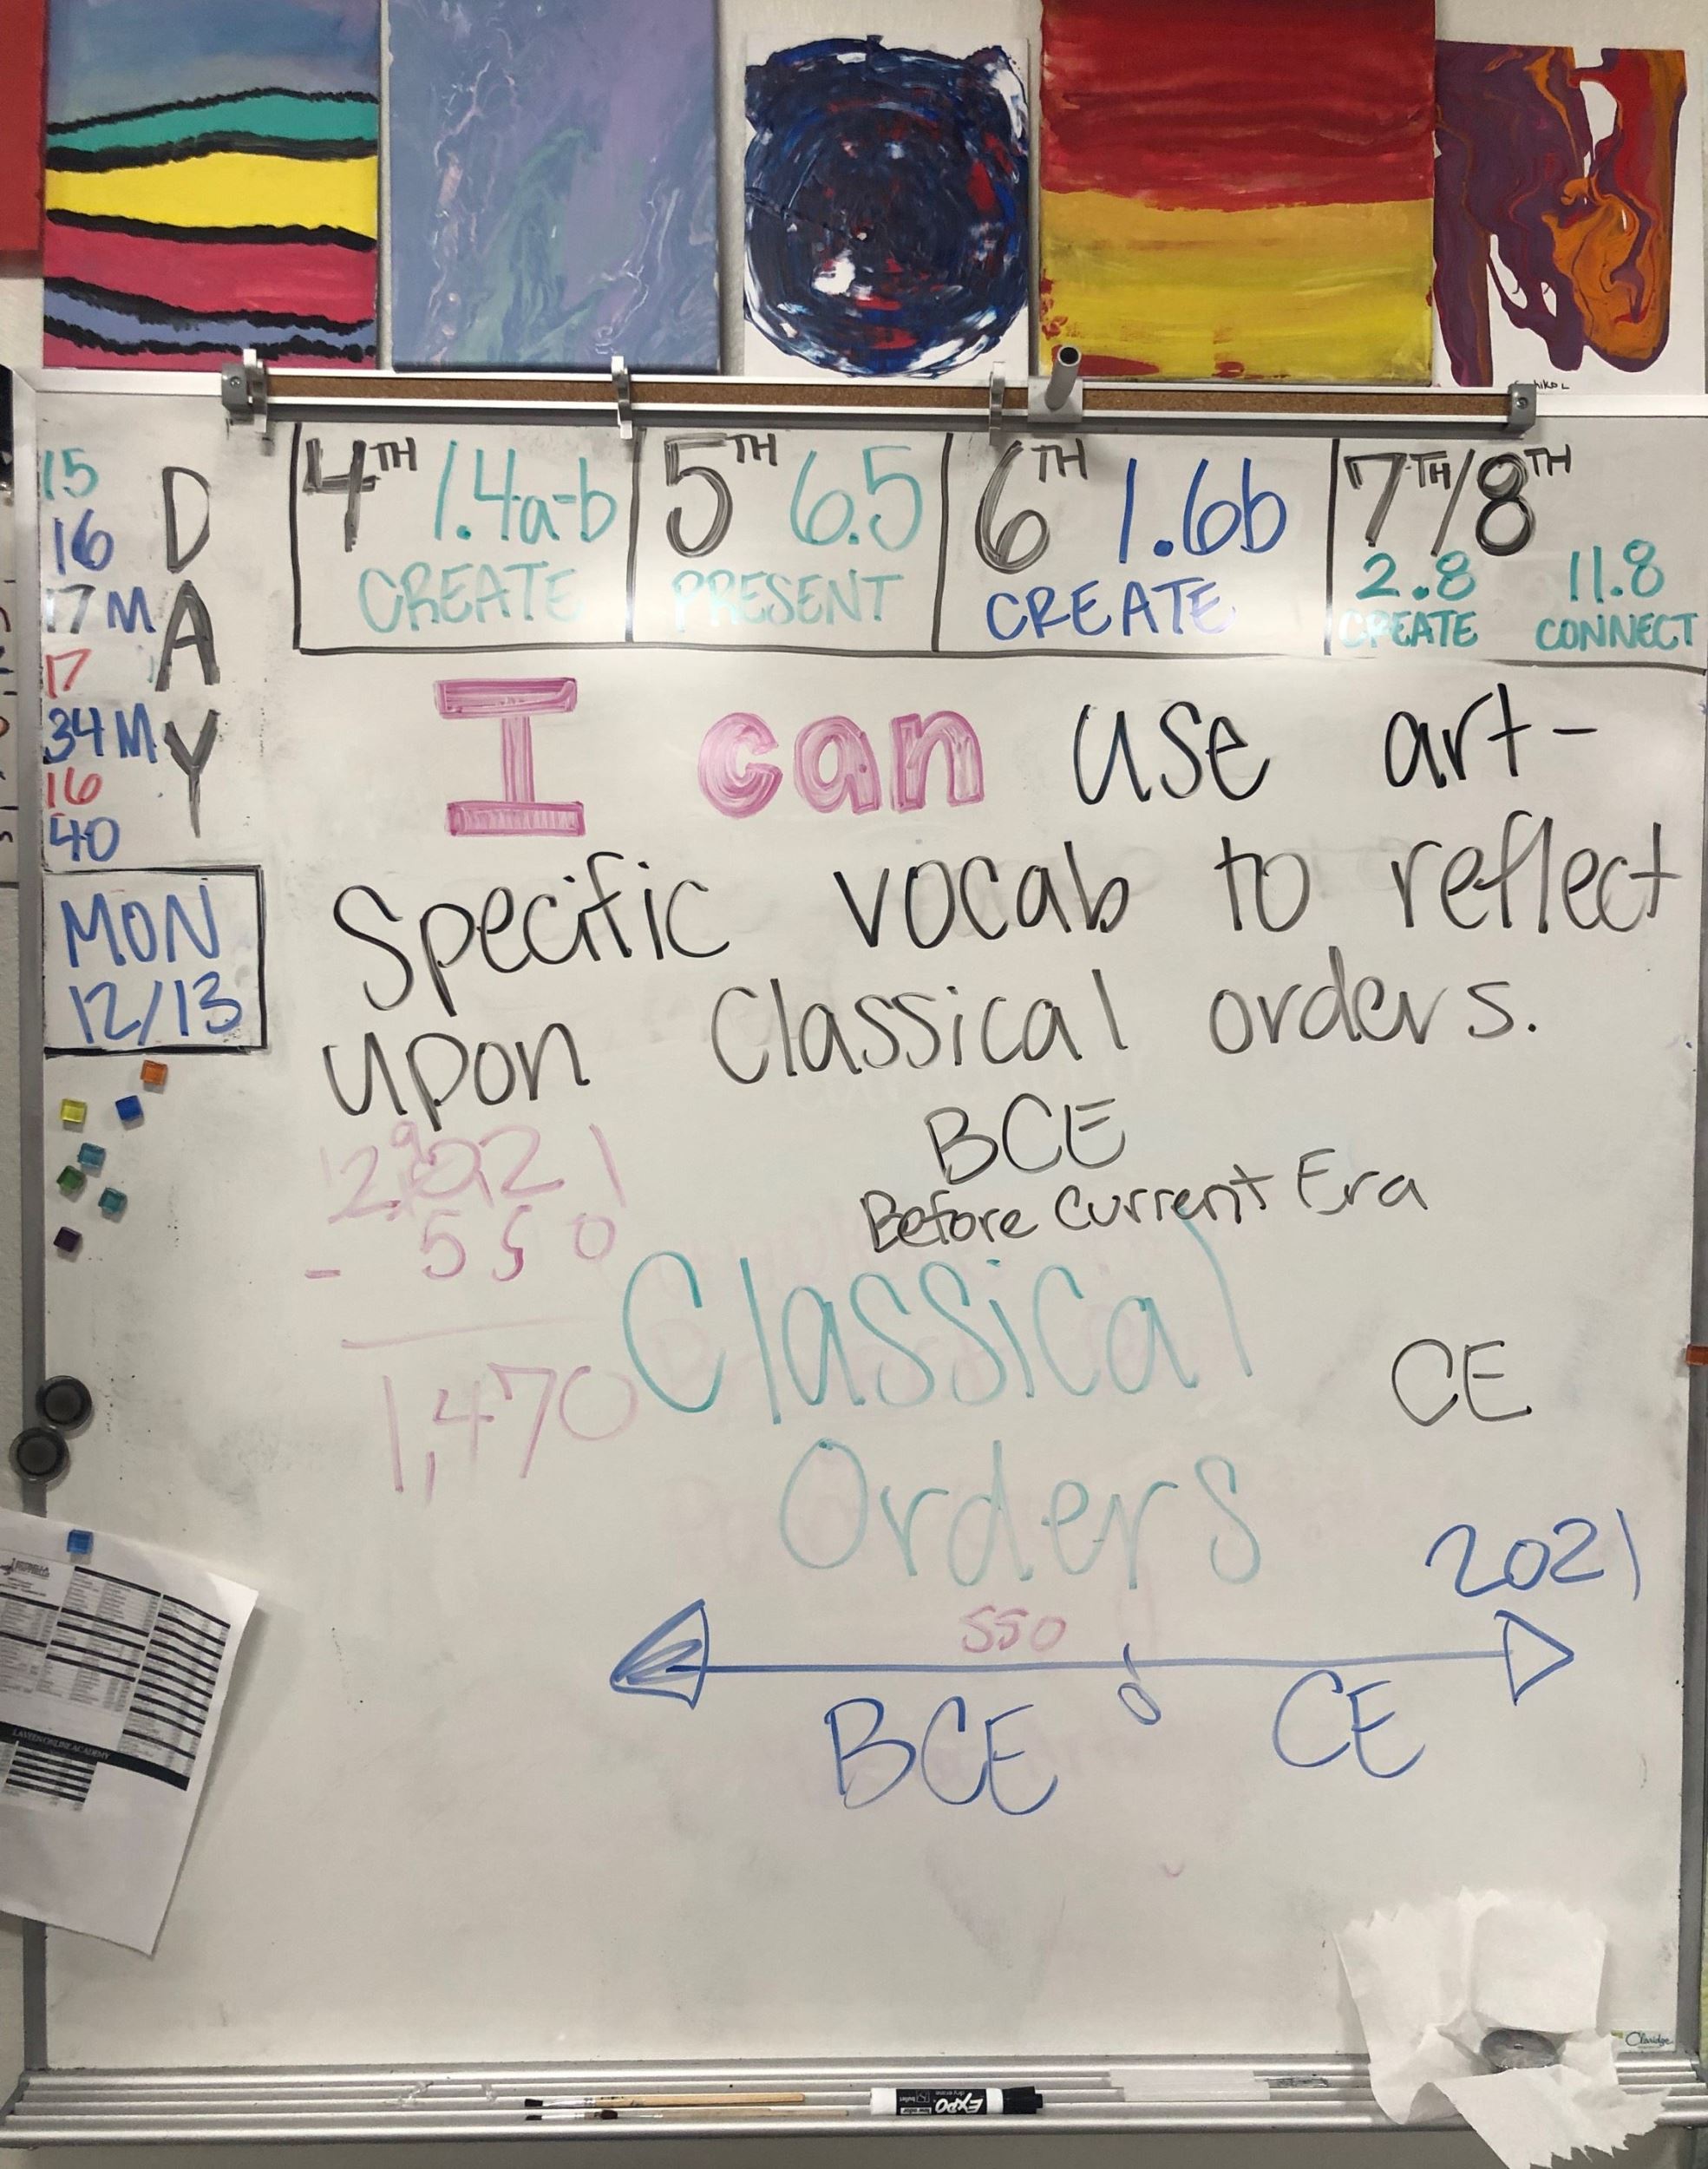 15
16
17M
17
34M
16
40
DAY
MON
12/13
4TH 1.4a-b
CREATE
5TH 6.5
PRESENT
6TH 1.6b
CREATE
7TH/8TH
2.8 11.8
CREATE CONNECT
I can use art-
Specific vocab to reflect
upon Classical orders.
BCE
Before Current Era
2021
- 550
1,470
Classical
Orders
CE
2021
550
0
BCE CE
LAVEEN ONLINE ACADEMY
EXPO
Claridge